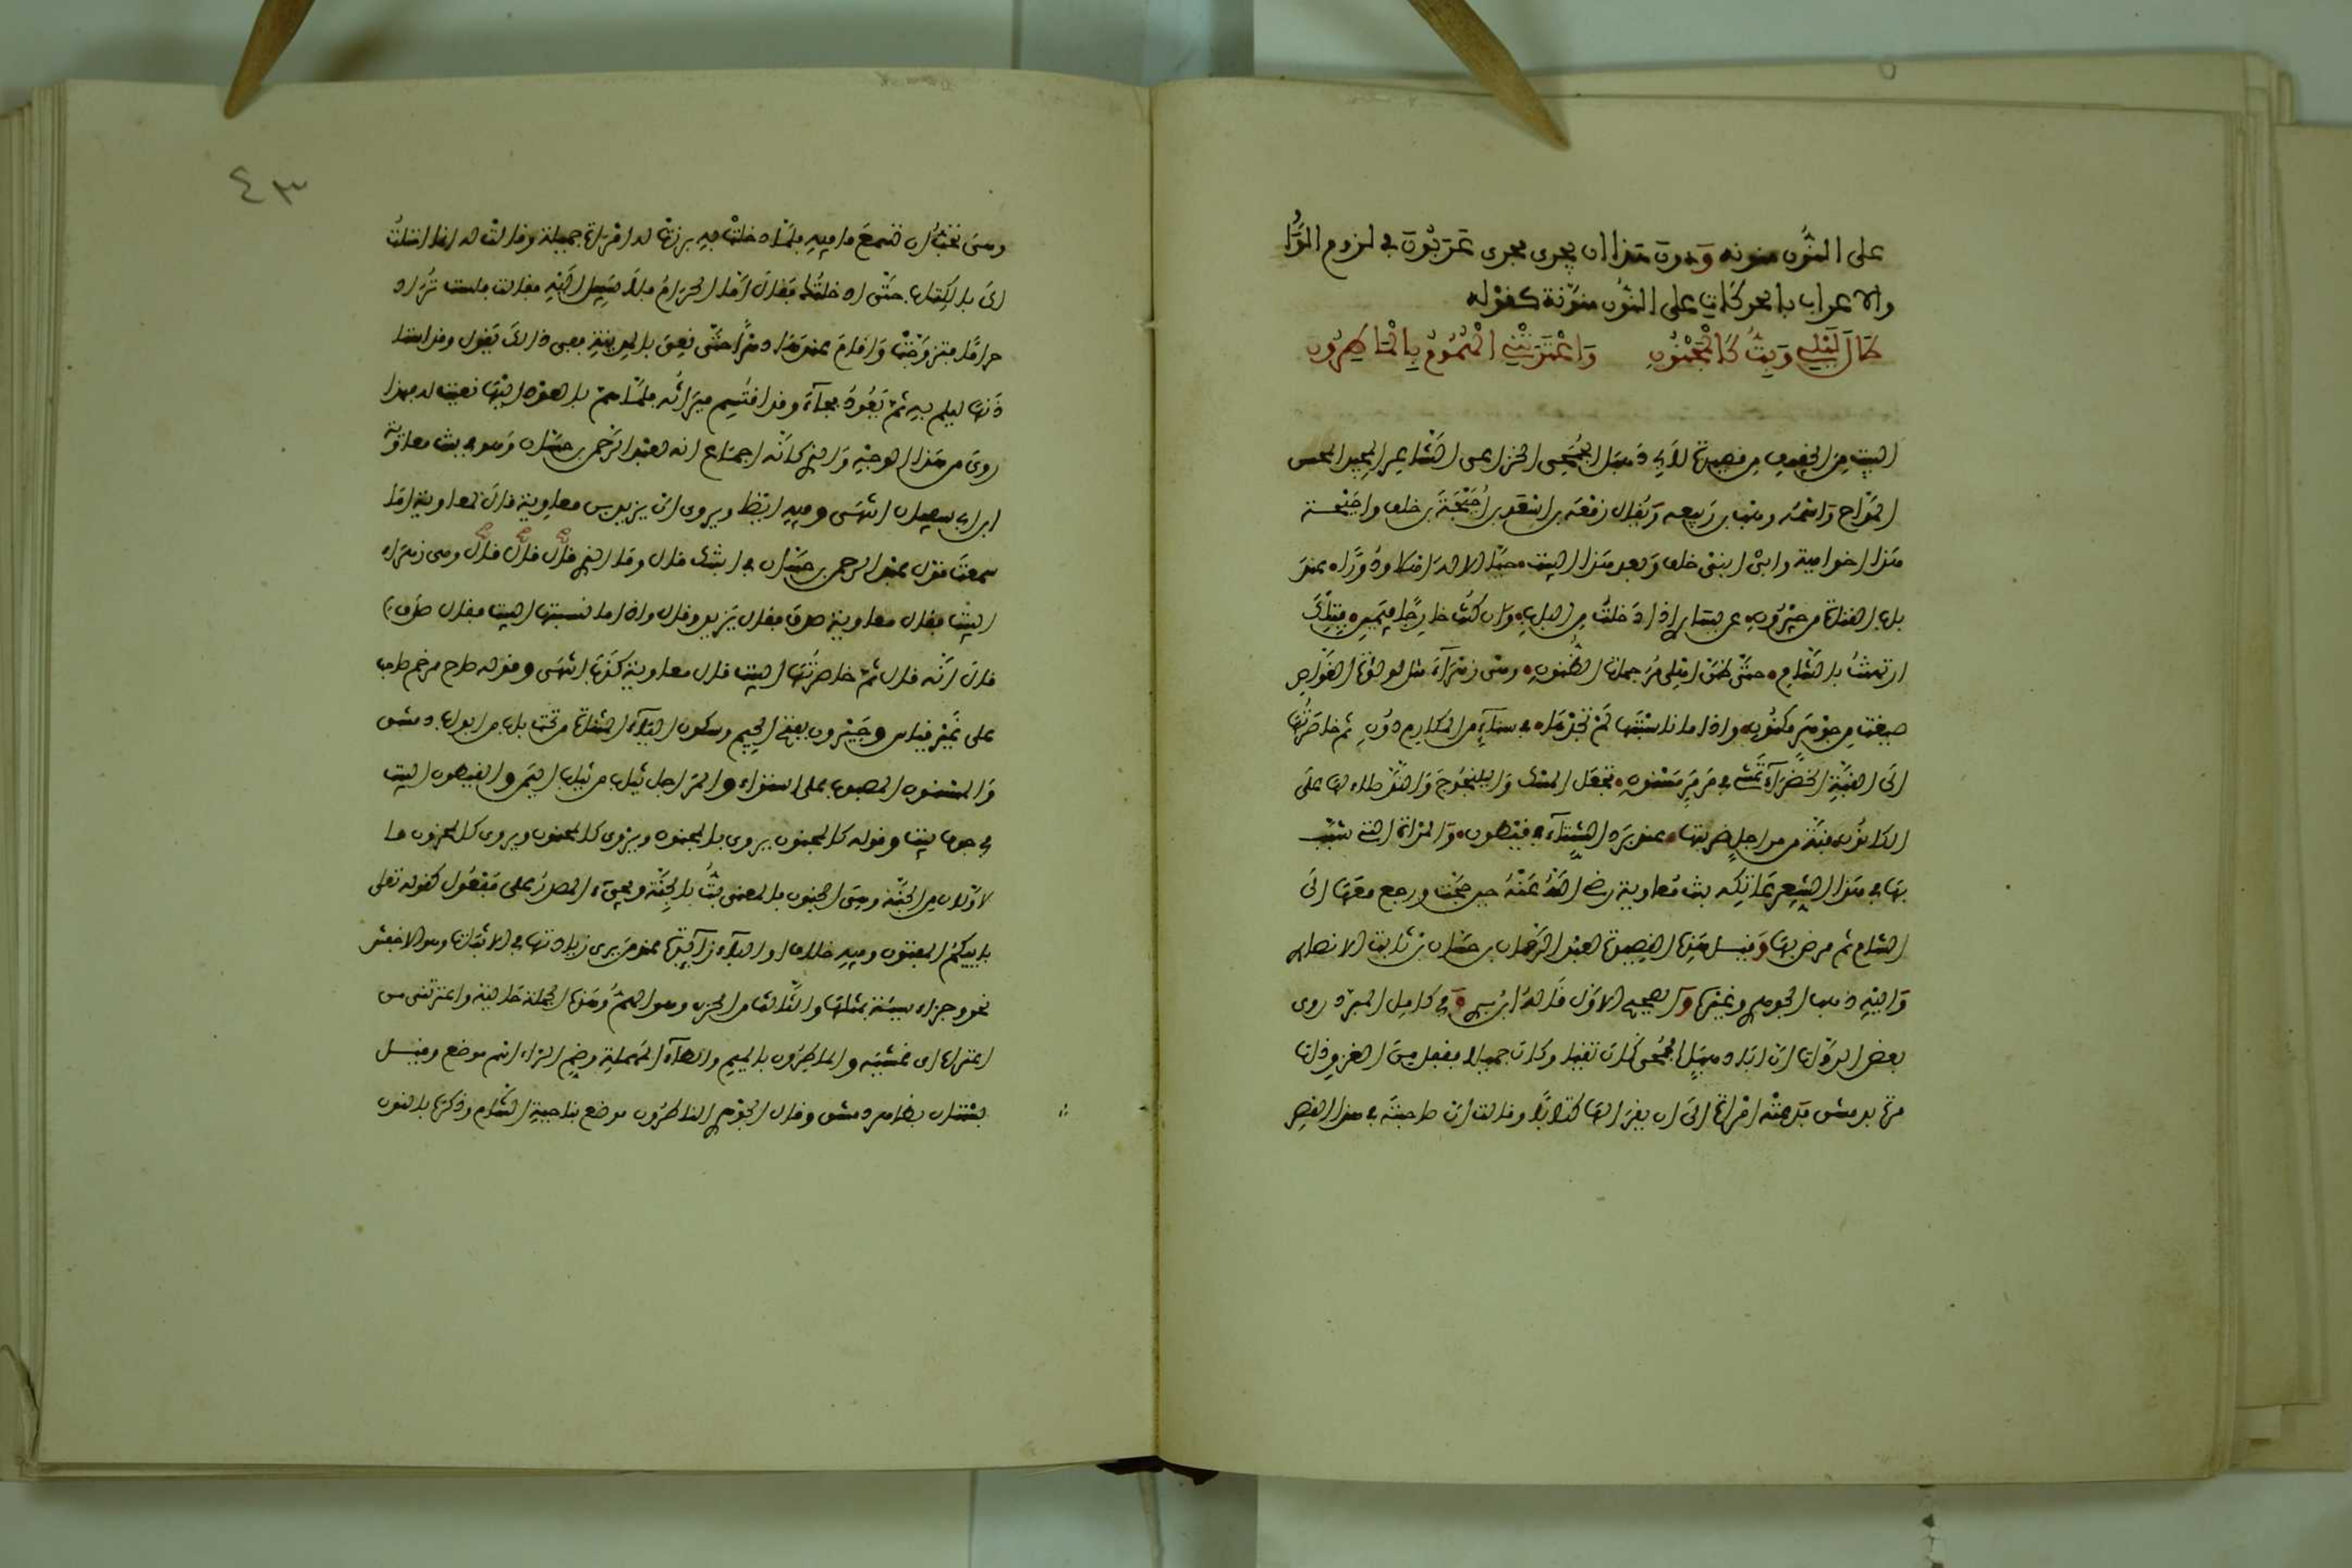 على النون منونه ودون هذا ان يجرى مجرى عربون في لزوم الواو
والاعراب بالحركات على النون منونة كقوله
طال ليلي وبت كالمجنون واعترتني الهموم بالماطرون
البيت من الخفيف من قصيدة لابي دهبل الجمحي الخزاعي الشاعر المجيد المحسن
المداح واسمه وهب بن ربيعه ويقال زمعه بن اسد بن احيحة بن خلف واحيحة
هذا اخو امية وابي ابني خلف وبعد هذا البيت حيا الاله اهلا ودورا عند
باب القناة من جيرون عن يساري اذا دخلت من الباب وان كنت خارجا فيميني فبتلك
ارتهنت بالشام حتى ظن اهلي مرجمات الظنون وهي زهراء مثل لولؤة الغواص
صيغت من جوهر مكنون واذا ما ناسبتها لم تجدها في سناء من المكارم دون ثم خاصرتها
الى القبة الخضراء تمشي في مرمر مسنون تجعل المسك واليلنجوج والند طلاء لها على
الكانون قبة من مراجل ضربتها عند برد الشتاء في قيطون والمراة التي شبب
بها في هذا الشعر عاتكه بنت معاوية رضي الله عنه حين حجت ورجع معها الى
الشام ثم مرض بها وقيل هذه القصيدة لعبد الرحمان بن حسان بن ثابت الانصاري
واليه ذهب الجوهري وغيره والصحيح الاول قاله ابن بري وفي كامل المبرد روى
بعض الرواة ان ابا دهبل الجمحي كان تقيا وكان جميلا فقفل من الغزو ذات
مرة بدمشق فدعته امراة الى ان يقرا لها كتابا وقالت ان صاحبته في هذا القصر
وهي تحب ان تسمع ما فيه فلما دخلت به برزت له امراة جميلة وقالت له انما احتلت
لك بالكتاب حتى ادخلتك فقال اما الحرام فلا سبيل اليه فقالت فلست تراد
حراما فتزوجته واقام عندها دهرا حتى نعي بالمدينة ففي ذالك يقول وقد استا
ذنها ليلم بهم ثم يعود فجاء وقد اقتسم ميراثه فلما هم بالعود اليها نعيت له فهذا
روي من هذا الوجه والذي كانه اجماع انه لعبد الرحمن بن حسان وهو في بنت معاوية
ابن ابي سفيان انتهى وفيه ايضا ويروى ان يزيد بن معاوية قال لمعاوية اما
سمعت قول عبد الرحمن بن حسان في ابنتك قال وما الذي قال قال قال وهي زهراء
البيت فقال معاوية صدق فقال يزيد وقال واذا ما نسبتها البيت فقال صدق
قال انه قال ثم خاصرتها البيت قال معاوية كذب انتهى وقوله صاح مرخم صاحب
على غير قياس وجيرون بفتح الجيم وسكون الياء المثناة من تحت باب من ابواب دمشق
والمسنون المصبوب على استواء والمراجل ثياب من ثياب اليمن والقيطون البيت
في جوف بيت وقوله كالمجنون يروى بالمجنون ويروى كالمحنون ويروى كالمحزون فا
لاولان من الجنة وهي الجنون فالمعنى بت بالجنة ومجيء المصدر على مفعول كقوله تعلى
باييكم المفتون وفيه خلاف او الباء زايدة عند من يرى زيادتها في الاثبات وهو الاخفش
نحو وجزاء سيئة بمثلها والثالث من الحزن وهو الهم وهذه الجملة حالية واعترتني من
اعتراه اى غشيه والماطرون بالميم والطاء المهملة وضم الراء اسم موضع وقيل
بستان بظاهر دمشق وقال الجوهري الناطرون موضع بناحية الشام وذكره بالنون
٤٣